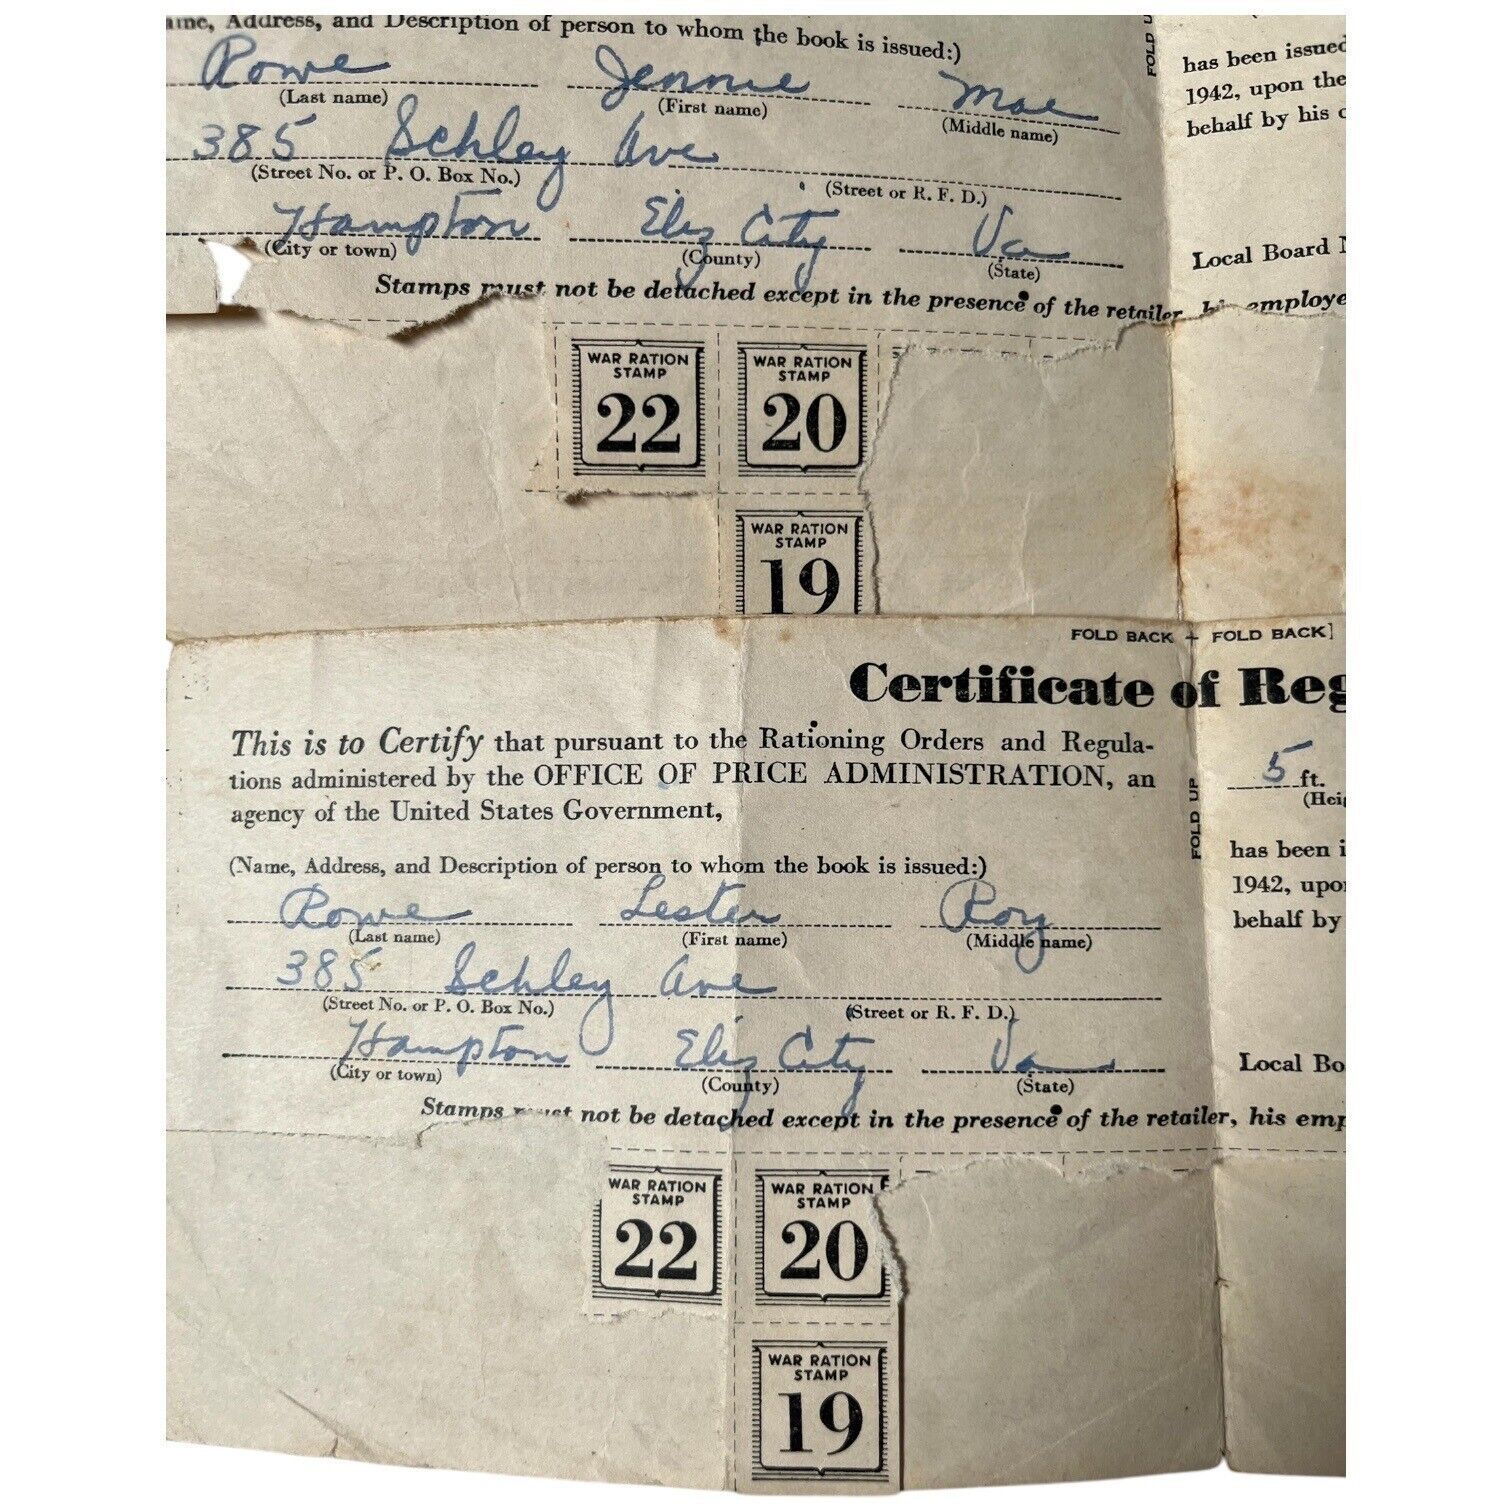 Name, Address, and Description of person to whom the book is issued:)
Rowe Jennie Mae
(Last name) (First name) (Middle name)
385 Schley Ave
(Street No. or P. O. Box No.) (Street or R. F. D.)
Hampton Eliz City Va
(City or town) (County) (State)
Stamps must not be detached except in the presence of the retailer, his employe
FOLD U
has been issued
1942, upon the
behalf by his o
Local Board N
WAR RATION STAMP 22
WAR RATION STAMP 20
WAR RATION STAMP 19
FOLD BACK + FOLD BACK]
Certificate of Reg
This is to Certify that pursuant to the Rationing Orders and Regula-
tions administered by the OFFICE OF PRICE ADMINISTRATION, an
agency of the United States Government,
(Name, Address, and Description of person to whom the book is issued:)
Rowe Lester Roy
(Last name) (First name) (Middle name)
385 Schley Ave
(Street No. or P. O. Box No.) (Street or R. F. D.)
Hampton Eliz City Va
(City or town) (County) (State)
Stamps must not be detached except in the presence of the retailer, his emp
FOLD UP
5 ft.
(Heig
has been i
1942, upo
behalf by
Local Bo
WAR RATION STAMP 22
WAR RATION STAMP 20
WAR RATION STAMP 19